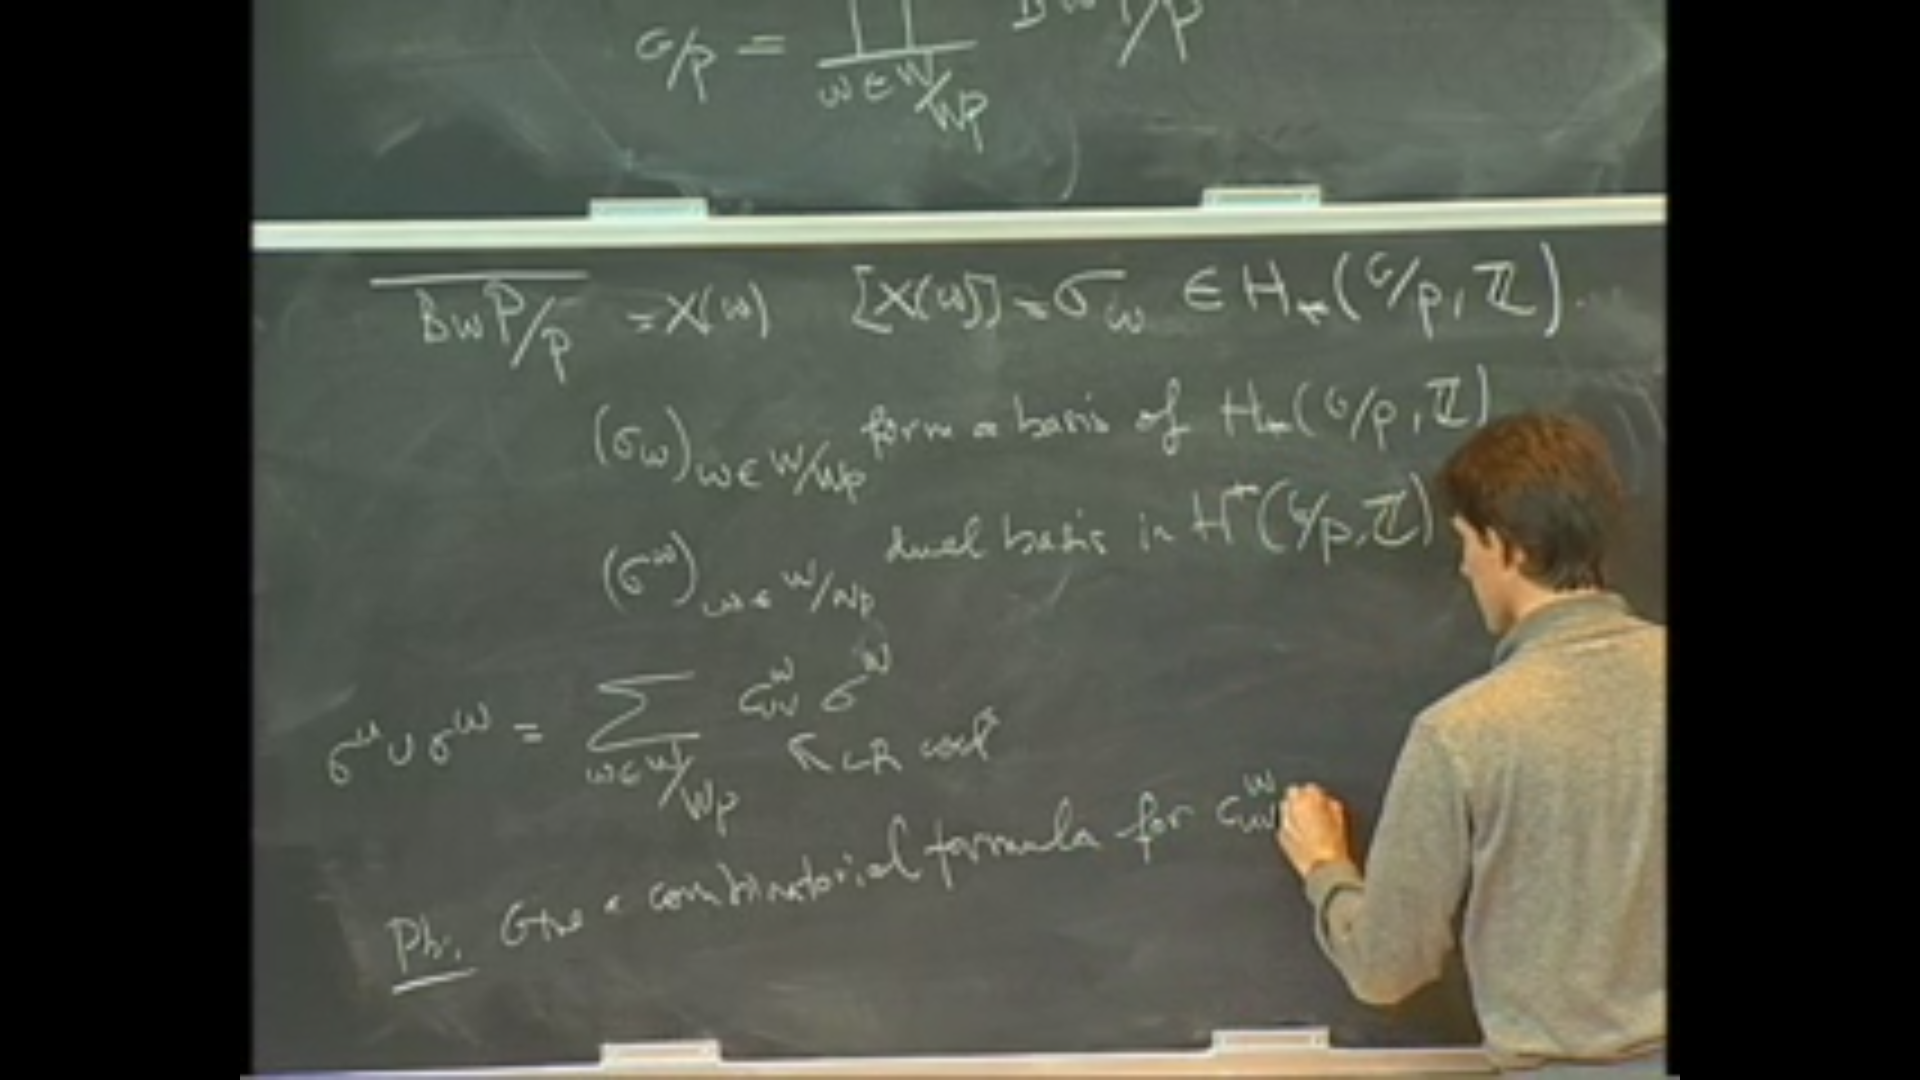 G/P = ∐_{w∈W/W_P} BwP/P
\overline{BwP/P} = X(w) [X(w)] = σ_w ∈ H_*(G/P, ℤ).
(σ_w)_{w∈W/W_P} form a basis of H_*(G/P, ℤ)
(σ^w)_{w∈W/W_P} dual basis in H^*(G/P, ℤ)
σ^u ∪ σ^w = ∑_{w∈W/W_P} c_{uv}^w σ^w
↖ LR coef^s
Pb. Give a combinatorial formula for c_{uv}^w